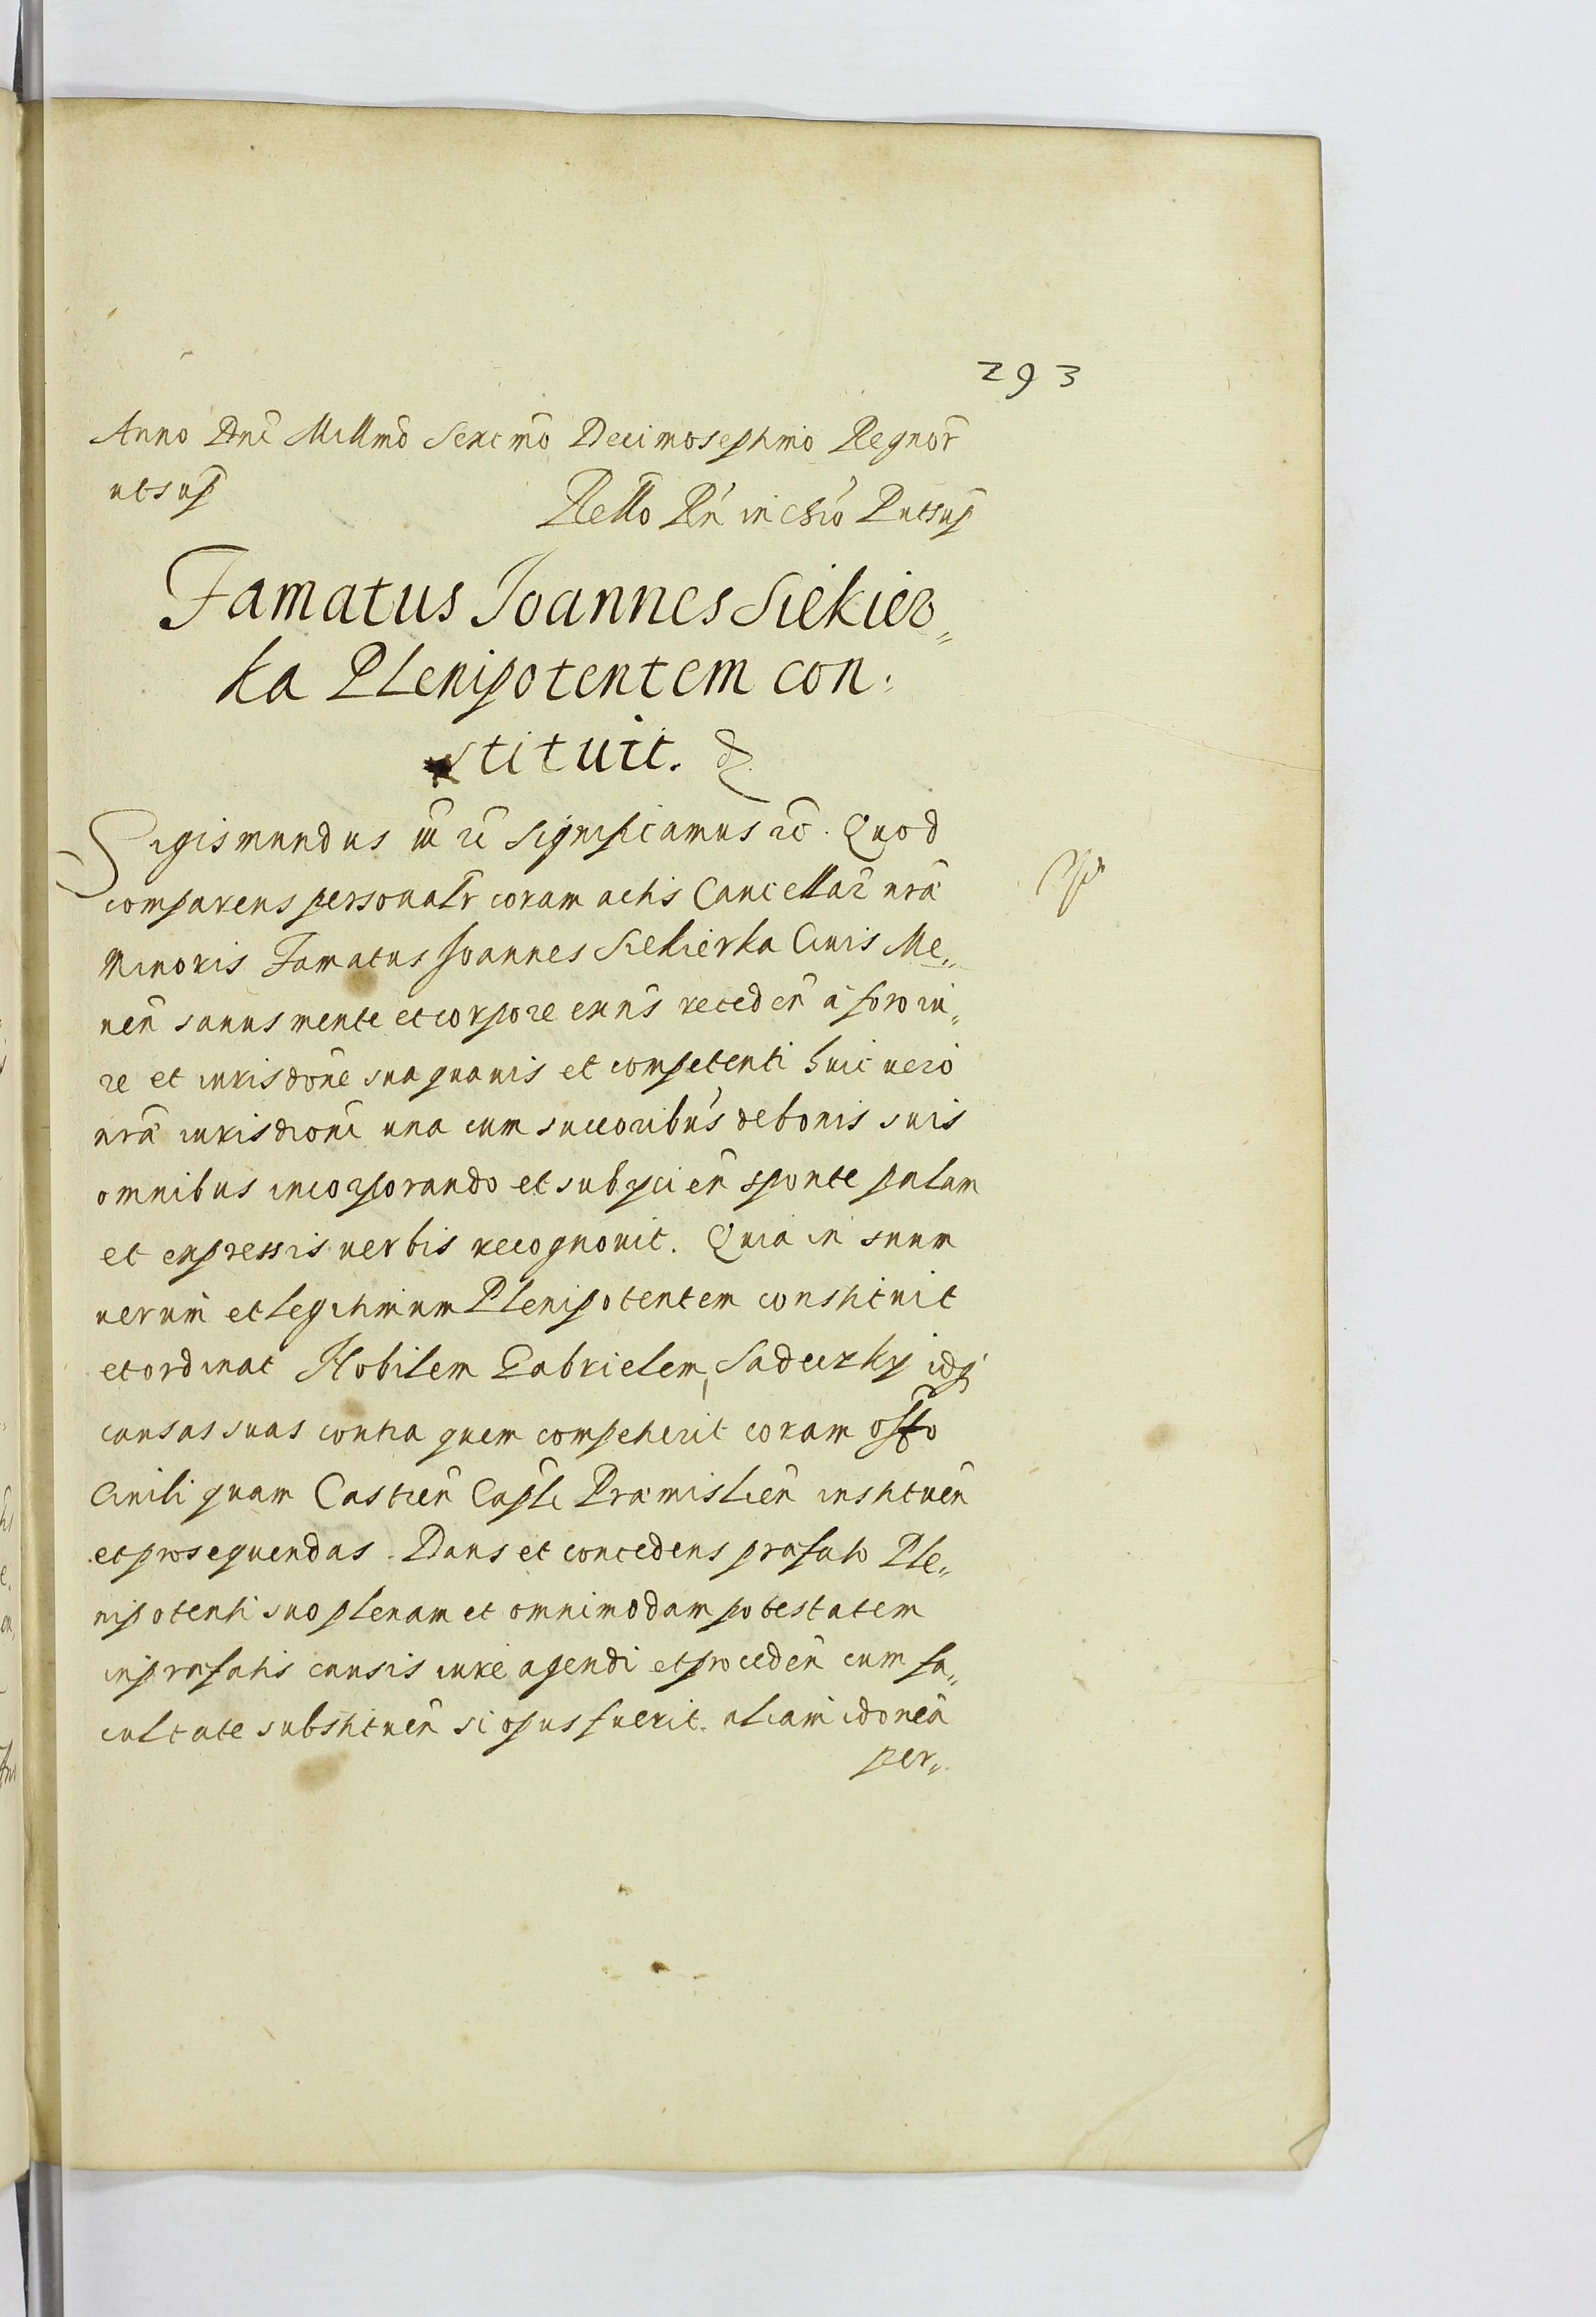 293
Anno Dnĩ Millmõ Sexcmõ Decimoseptimo Regnor̃
utsup̃
Rellõ Rñ in cĥro R utsup̃
Famatus Joannes Siekier„
ka Plenipotentem con:
stituit. &.
Sigismundus iii rc̃ significamus rc̃. Quod
comparens personalr̃ coram actis Cancellar̃ nrã
Minoris Famatus Joannes Siekierka Ciuis Me„
neñ sanus mente et corpore exñs recedeñ à foro iu„
re et iurisdõne sua quauis et competenti huic uero
nrã iurisdioñi una cum succoribus de bonis suis
omnibus incorporando et subijcieñ sponte palam
et expressis uerbis recognouit. Quia in suum
uerum et legitimum Plenipotentem constituit
et ordinat Nobilem Gabrielem, Sadeczky idq;
causas suas contra quem competierit coram offo
Ciuili quam Castreñ Capli Præmislieñ instituеñ
et prosequendas. Dans et concedens præfato Ple„
nipotenti suo plenam et omnimodam potestatem
in præfatis causis iure agendi et procedeñ cum fa„
cultate substituеñ si opus fuerit. aliam idoneã
per„